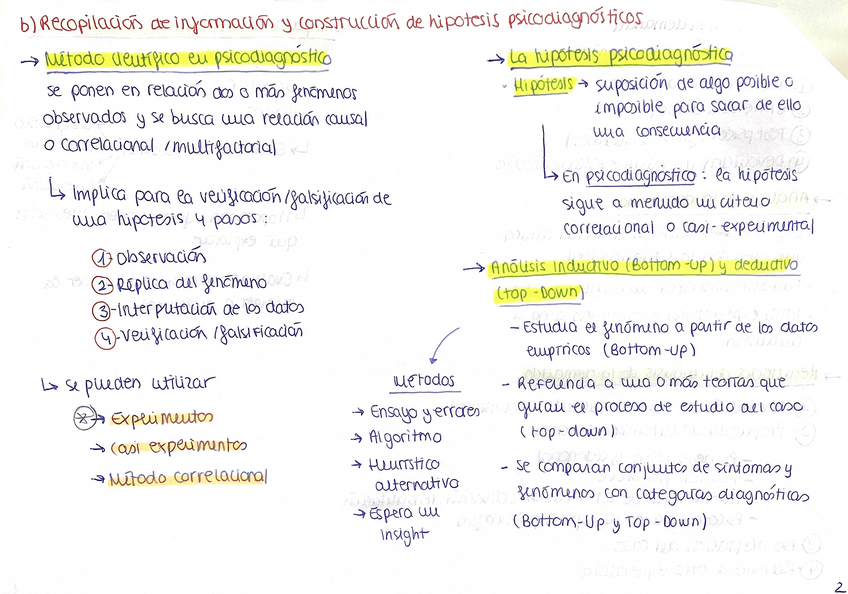 b) Recopilación de información y construcción de hipotesis psicodiagnósticos
→ Método científico en psicodiagnóstico
se ponen en relación dos o más fenómenos
observados y se busca una relación causal
o correlacional /multifactorial
↳ Implica para la verificación/falsificación de
una hipótesis 4 pasos:
1- Observación
2- Réplica del fenómeno
3- Interpretación de los datos
4- Verificación /falsificación
↳ se pueden utilizar
→ Experimentos
→ Casi experimentos
→ Método correlacional
→ La hipótesis psicodiagnóstica
· Hipótesis → suposición de algo posible o
imposible para sacar de ello
una consecuencia
↳ En psicodiagnóstico: la hipótesis
sigue a menudo un criterio
correlacional o casi-experimental
→ Análisis inductivo (Bottom-up) y deductivo
(top-Down)
- Estudia el fenómeno a partir de los datos
empíricos (Bottom-up)
- Referencia a una o más teorías que
guían el proceso de estudio del caso
(top-down)
- Se comparan conjuntos de síntomas y
fenómenos con categorías diagnósticas
(Bottom-Up y Top-Down)
Métodos
→ Ensayo y errores
→ Algoritmo
→ Heurístico
alternativo
→ Espera un
insight
2